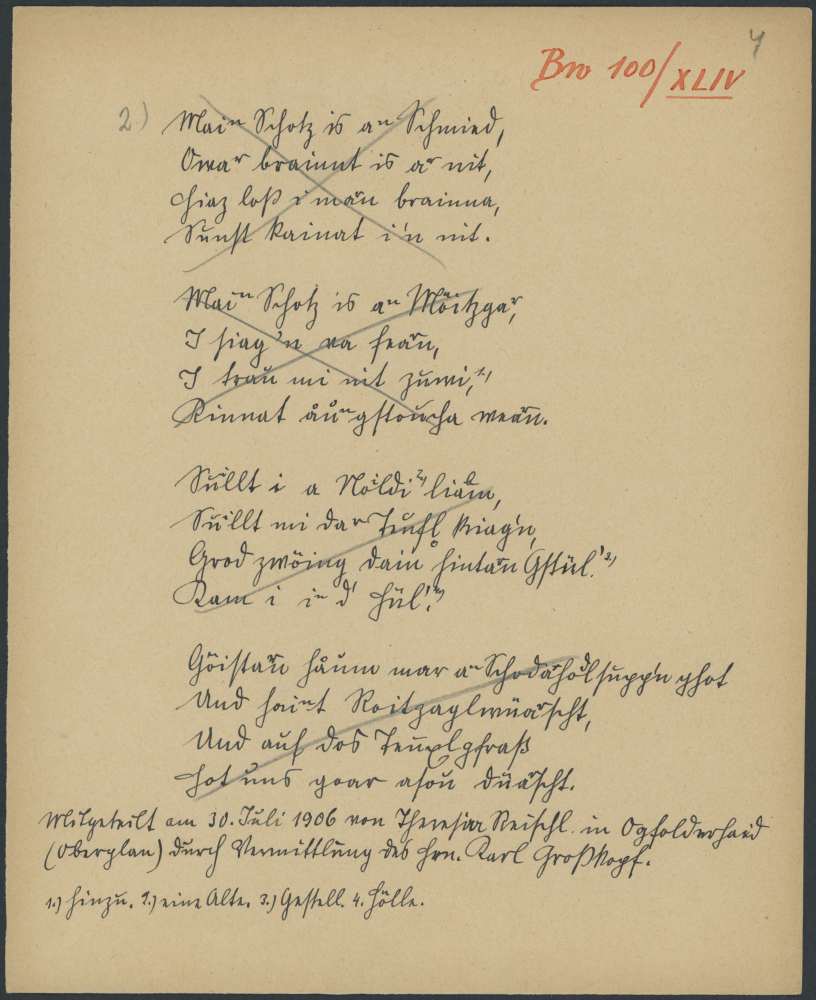 Bro 100/XLIV
4
2) Maiⁿ Schotz is aⁿ Schmied,
Owaʳ brainnt is aʳ nit,
Hiaz loß i mān brainna,
Sunst kainat i'n nit.
Maiⁿ Schotz is aⁿ Möitzgaʳ,
I siag'n va feaʳn,
I trau mi nit zuwi,¹⁾
Kinnat åuⁿgstoucha weaʳn.
Sullt i a Nöildi²⁾
Sullt mi daʳ Teufl kriag'n,
Grod zwöing dain hintaʳn Gstül.'³⁾
Kam i iⁿ d' Hül'.⁴⁾
Göistaʳn håum mar aⁿ ghot
Und haiⁿt
Und auf dos
Hot uns goar asou düaʳscht.
Mitgeteilt am 30. Juli 1906 von Theresia Reischl in Ogfolderhaid
(Oberplan) durch Vermittlung des Hrn. Karl Großkopf.
1.) hinzu. 2.) eine Alte. 3.) Gestell. 4. Hölle.